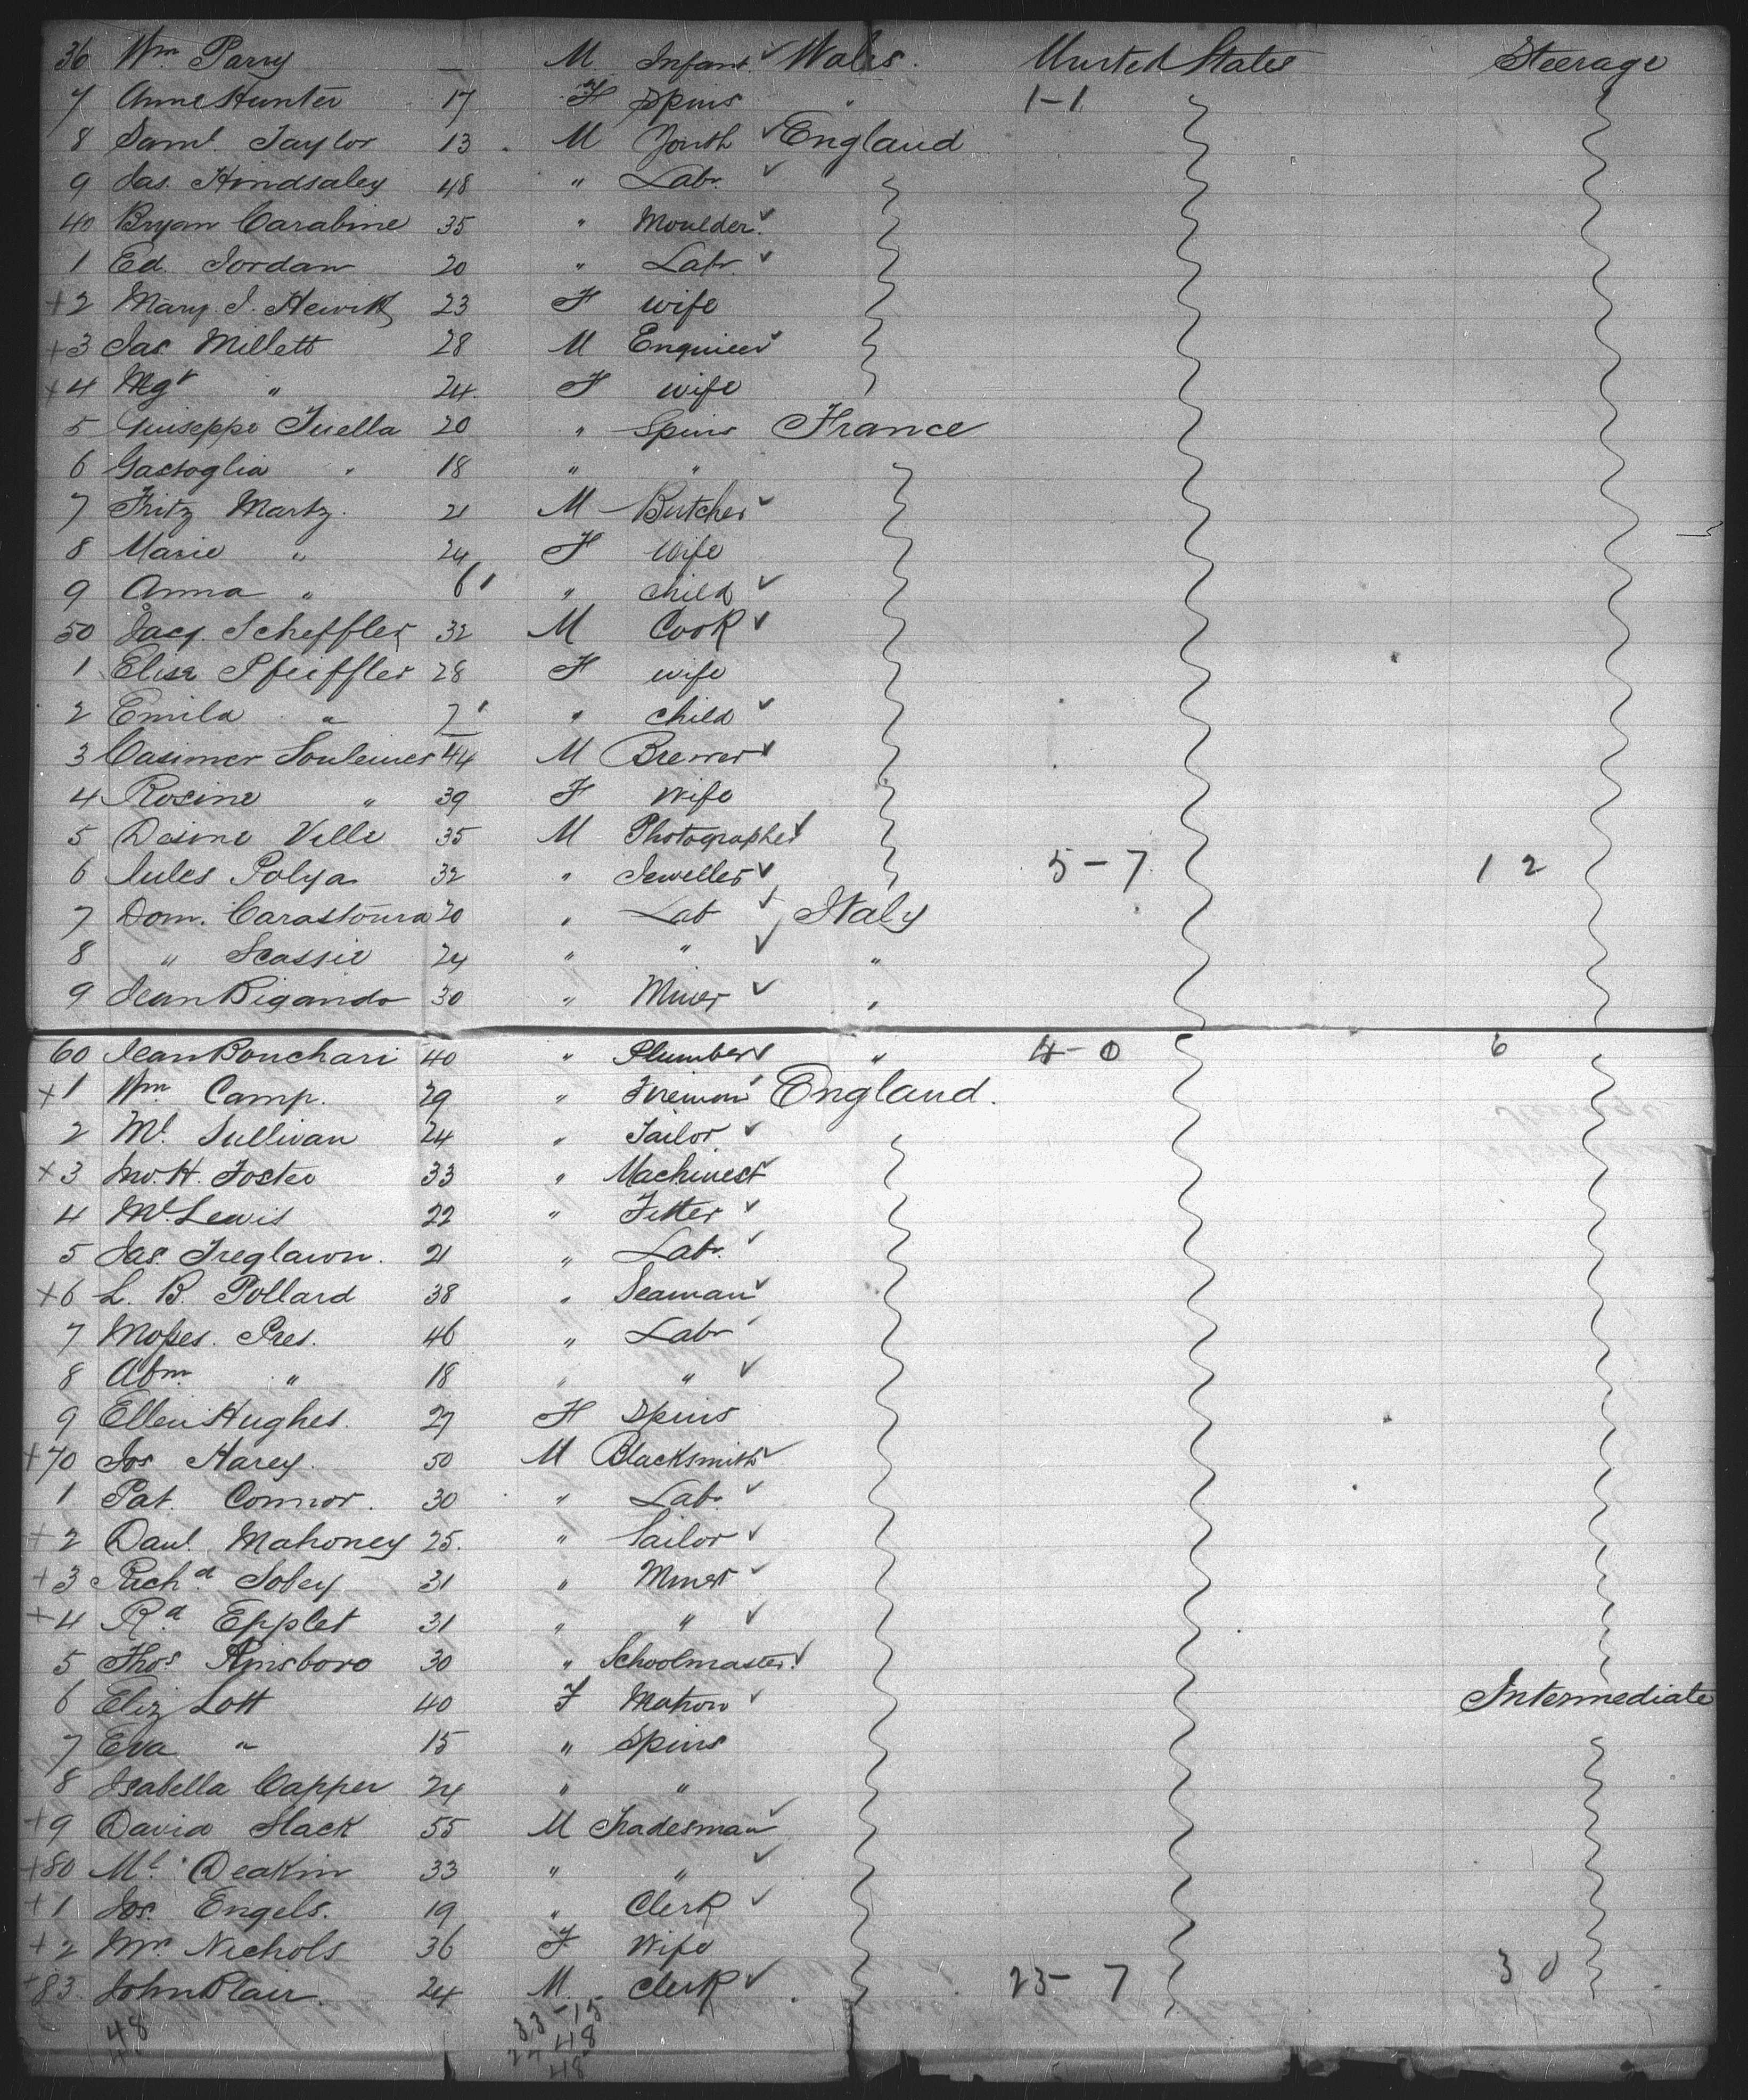 36 Wm Parry — M Infant ✓ Wales. United States Steerage
7 Anne Hunter 17 F Spins " 1-1
8 Saml. Taylor 13 . M Youth ✓ England
9 Jas. Hindsaley 48 " Labr. ✓
40 Bryan Carabine 35 " Moulder. ✓
1 Ed. Jordan 20 " Labr. ✓
+2 Mary. J. Hewitt 23 F wife
+3 Jas Millett 28 M Engineer ✓
+4 Mgt " 24. F wife
5 Guiseppe Tuella 20 " Spins France
6 Gastoglia " 18 " "
7 Fritz Martz. 21 M Butcher ✓
8 Marie " 24 F Wife
9 Anna " 6 " child ✓
50 Jacq. Scheffler 32 M Cook ✓
1 Elisa Pfeiffler 28 F wife
2 Emila " 7 " child ✓
3 Casimer Souleines 44 M Brewer ✓
4 Rosine " 39 F Wife
5 Desine Ville 35 M Photographer ✓
6 Jules Polya 32 " Jeweller ✓ 5-7 12
7 Dom. Carastoura 20 " Lab ✓ Italy
8 " Scassie 24 " " ✓ "
9 Jean Bigando 30 " Miner ✓ "
60 Jean Bonchari 40 " Plumber ✓ " 4-0 6
+1 Wm Camp. 29 " Fireman ✓ England.
2 Ml. Sullivan 24 " Tailor ✓
+3 Jno. H. Foster 33 " Machinest ✓
4 Ml. Lewis 22 " Fitter ✓
5 Jas. Treglawn. 21 " Labr. ✓
+6 L. B. Pollard 38 " Seaman ✓
7 Moses. Pres. 46 " Labr ✓
8 Abm. " 18 " " ✓
9 Ellen Hughes. 27 F Spins
+70 Jos Harey. 50 M Blacksmith ✓
1 Pat. Connor. 30 " Labr. ✓
+2 Danl. Mahoney 25. " Sailor ✓
+3 Richd. Sobey 31 " Miner ✓
+4 Rd. Epplet 31 " " ✓
5 Thos Ainsboro 30 " Schoolmaster. ✓
6 Eliz Lott 40 F Matron ✓ Intermediate
7 Eva " 15 " Spins
8 Isabella Capper 24 " "
+9 David Slack 55 M Tradesman ✓
+80 Ml. Deakin 33 " " ✓
+1 Jos. Engels. 19 " Clerk ✓
+2 Mrs Nichols 36 F Wife
+83. John Blair. 24 M. Clerk ✓ . 23-7 30
48 33-15
24 48
48